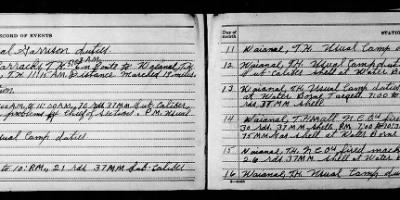 RECORD OF EVENTS
al Garrison duties
Barracks, T.H. En Route to Waianai, T.H.
T.H. 11:15 A.M. Distance Marched 18 miles.
tion
to 11:00 A.M., 70 rds 37 MM Sub-Caliber
problems by Chief of Section. P.M. Usual
sual Camp duties
to 10: P.M., 21 rds 37 MM Sub-Caliber
Day of Month
STATION
11 Waianai, T.H. Usual Camp d
12 Waianai, T.H. Usual Camp dut
Sub-Caliber shell at Water Bor
13 Waianai, T.H. Usual Camp duties
at Water Borne Target 7:00 P
rds 37 MM shell
14 Waianai, T.H. N.C.O's fired
30 rds. 37 MM shells P.M. 7:00 to 10:3
75 MM Gas shell at Water Borne
15 Waianai, T.H. N.C.O's fired mach
26 rds. 37 MM shell at Water B
16 Waianai, T.H. Usual Camp dut